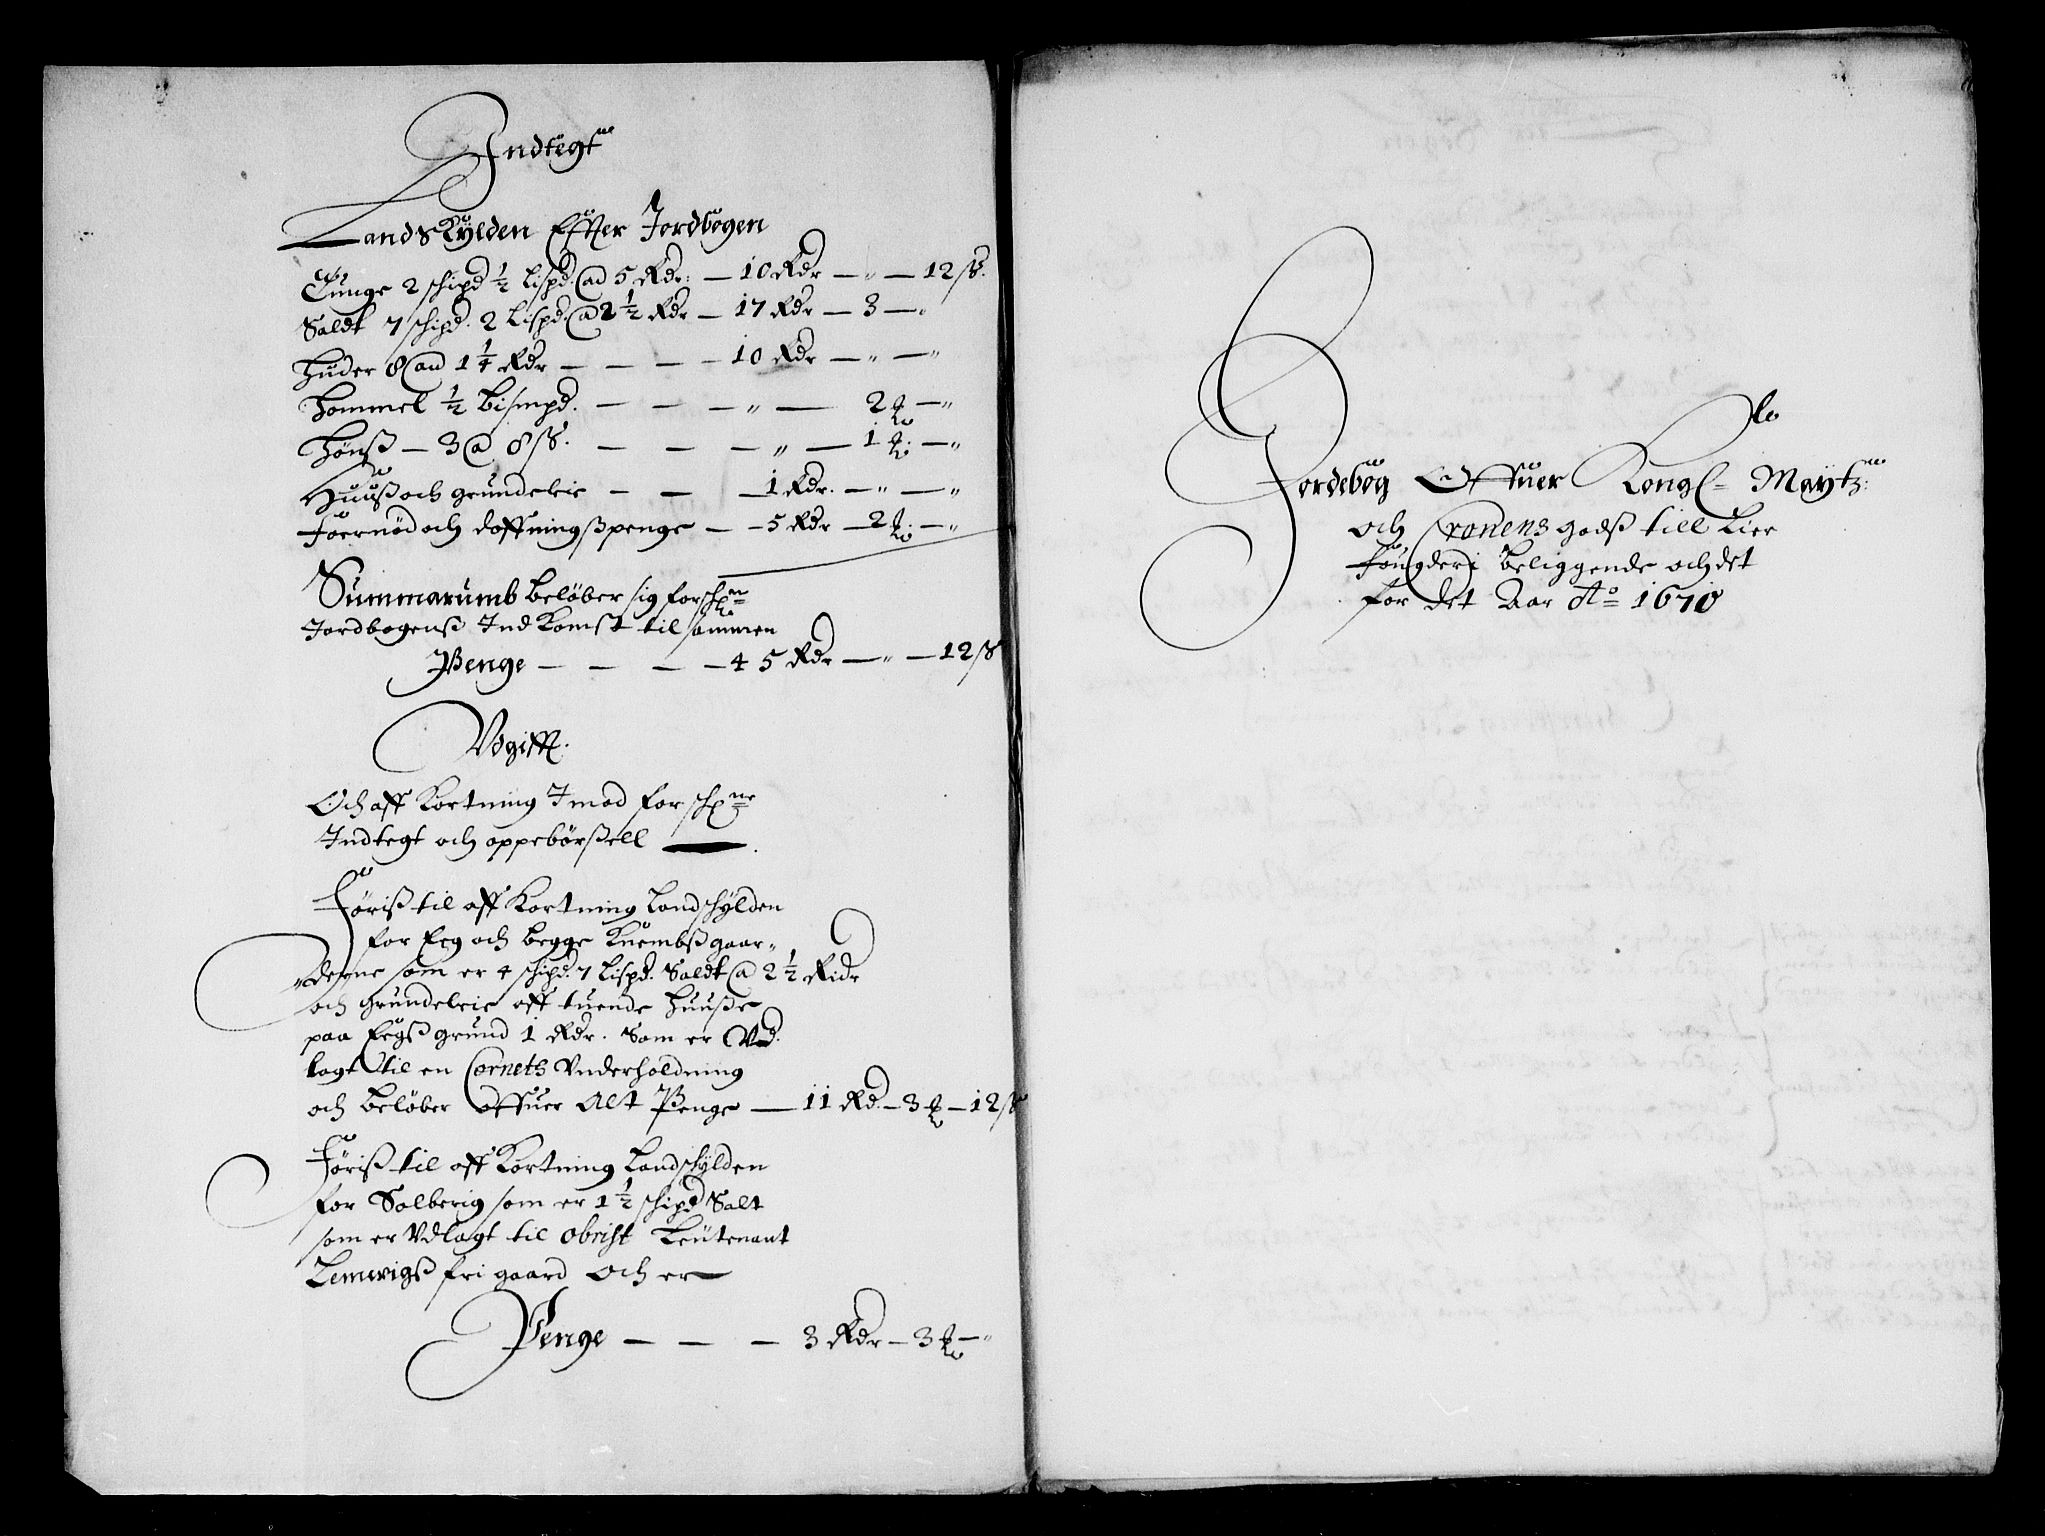 Indtegt
Landskylden Effter Jordbogen
Tunge 2 schipd ½ lispd. @ 5 Rdr: — 10 Rdr — „ — 12 ß.
Saldt 7 schipd. 2 Lispd. @ 2½ Rdr — 17 Rdr — 3 — „
Huder 8 @ 1¼ Rdr — — — — 10 Rdr — „ — „
Hommel ½ bismpd. — — — „ — 2 — „
Hønß — 3 @ 8 ß. — — — „ — 1 — „
Huuß och grundeleie — — — 1 Rdr. — „ — „
Foernød och doffningß penge — — 5 Rdr — 2 — „
Summarumb beløber sig forschne
Jordbogenß Indkomst til sammen
Penge — — — — 45 Rdr — „ — 12 ß
Vdgifft.
Och aff Kortning Imod forschne
Indtegt och oppebørßell —
Føriß til aff Kortning Landschylden
for Eeg och begge Kuembß gaar„
„derne som er 4 schipd. 7 Lispd. Saldt @ 2½ Ridr
och grundeleie aff tuende Huuße
paa Eegß grund 1 Rdr. Som er Vd.
lagt til en Cornets Vnderholdning
och beløber offuer Alt Penge — 11 Rd. — 3 — 12 ß
Føriß til aff Kortning Landschylden
for Solberig som er 1½ schipd Salt
som er Vdlagt til Obrist Leutenant
Lemvigß fri gaard Och er —
Penge — — — 3 Rdr — 3 — „
Jordebog Offuer Kongl= Maytz:
och Cronens godß till Lier
Fougderi beliggende och det
for det Aar Ao 1670